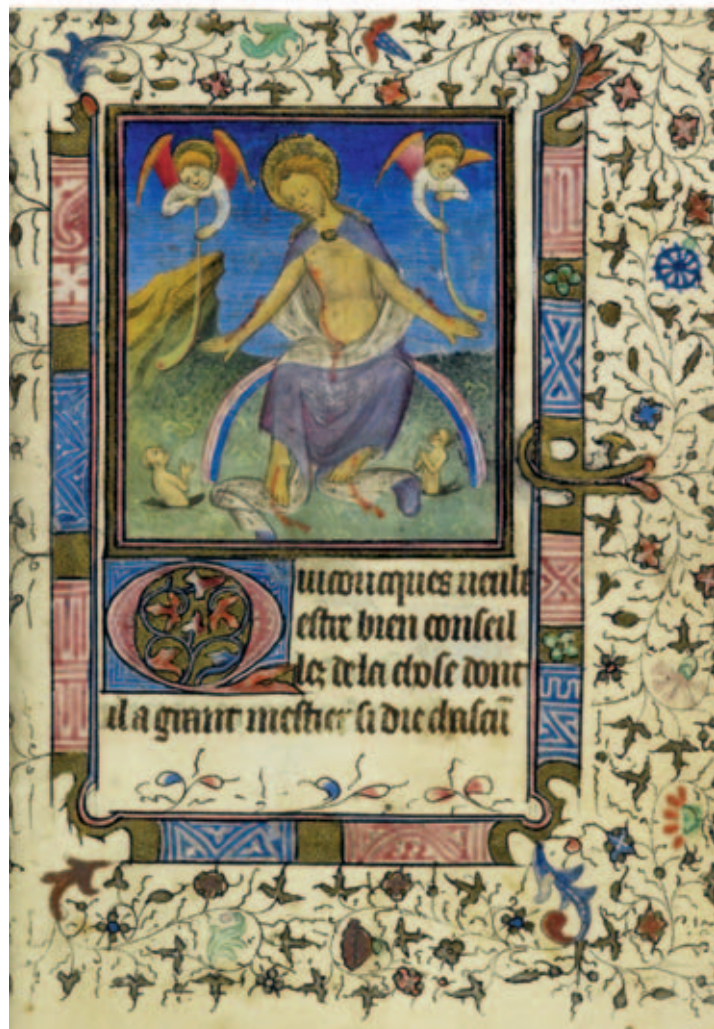 Quiconcques veult
estre bien conseil
lez de la chose dont
il a grant mestier si die chascũ